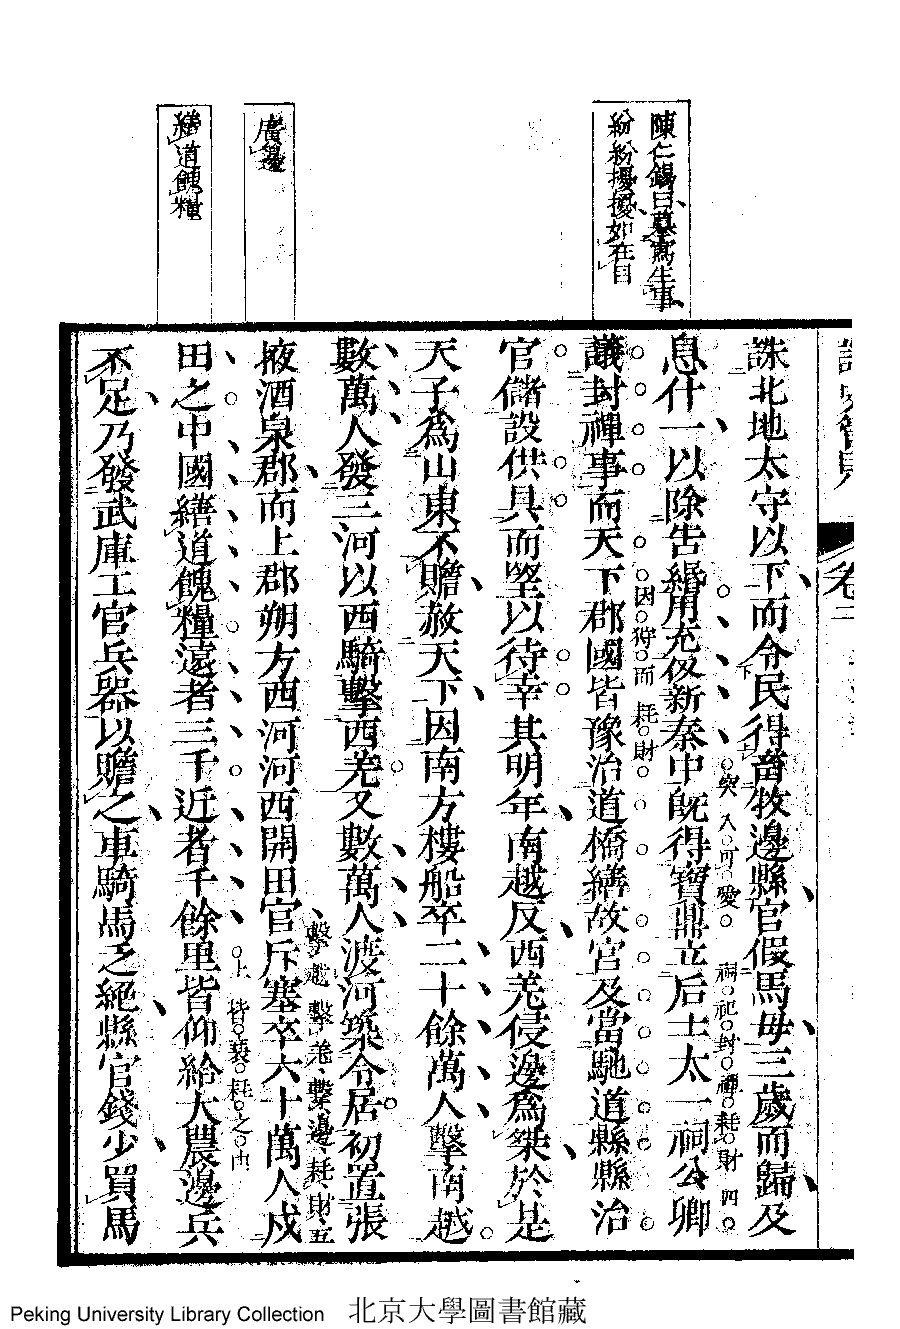 陳仁錫曰墓寫生事
紛紛擾擾如在目
廣邊
繕道餽糧
卷二
誅北地太守以下而令民得畜牧邊縣官假馬母三歲而歸及
息什一以除告緡用充仭新秦中旣得寶鼎立后土太一祠公卿
議封禪事而天下郡國皆豫治道橋繕故宮及當馳道縣縣治
官儲設供具而朢以待幸其明年南越反西羌侵邊爲桀於是
天子爲山東不贍赦天下因南方樓船卒二十餘萬人擊南越
數萬人發三河以西騎擊西羌又數萬人渡河築令居初置張
掖酒泉郡而上郡朔方西河河西開田官斥塞卒六十萬人戍
田之中國繕道餽糧遠者三千近者千餘里皆仰給大農邊兵
不足乃發武庫工官兵器以贍之車騎馬乏絕縣官錢少買馬
突入可愛
祠祀封禪耗財四
因狩而耗財
擊越擊羌擊邊耗財五
上皆褻耗之由
Peking University Library Collection 北京大學圖書館藏